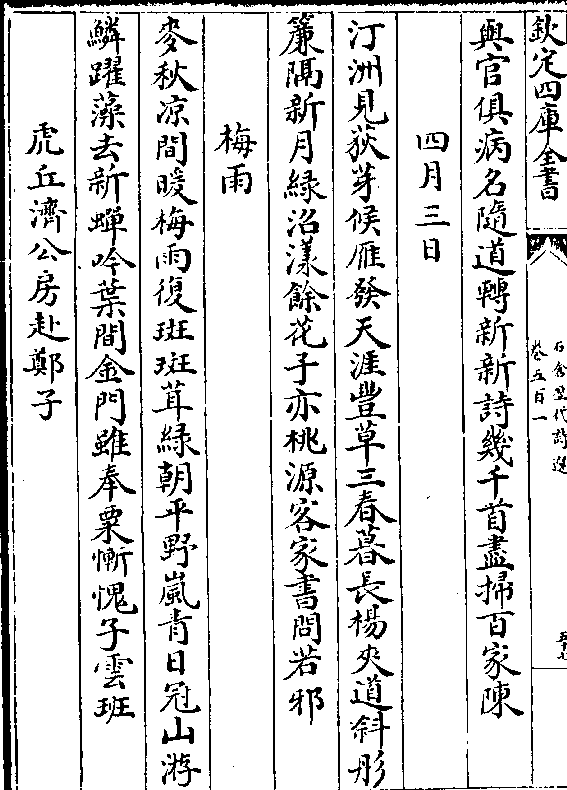 欽定四庫全書
石倉歷代詩選
卷五百一
與官俱病名隨道轉新新詩幾千首盡掃百家陳
四月三日
汀洲見荻芽候雁發天涯豐草三春暮長楊夾道斜彤
簾隔新月緑沼漾餘花子亦桃源客家書問若邪
梅雨
麥秋凉間暖梅雨復斑斑茸緑朝平野嵐青日冠山游
鱗躍藻去新蟬吟葉間金門雖奉粟慚愧子雲班
虎丘濟公房赴鄭子